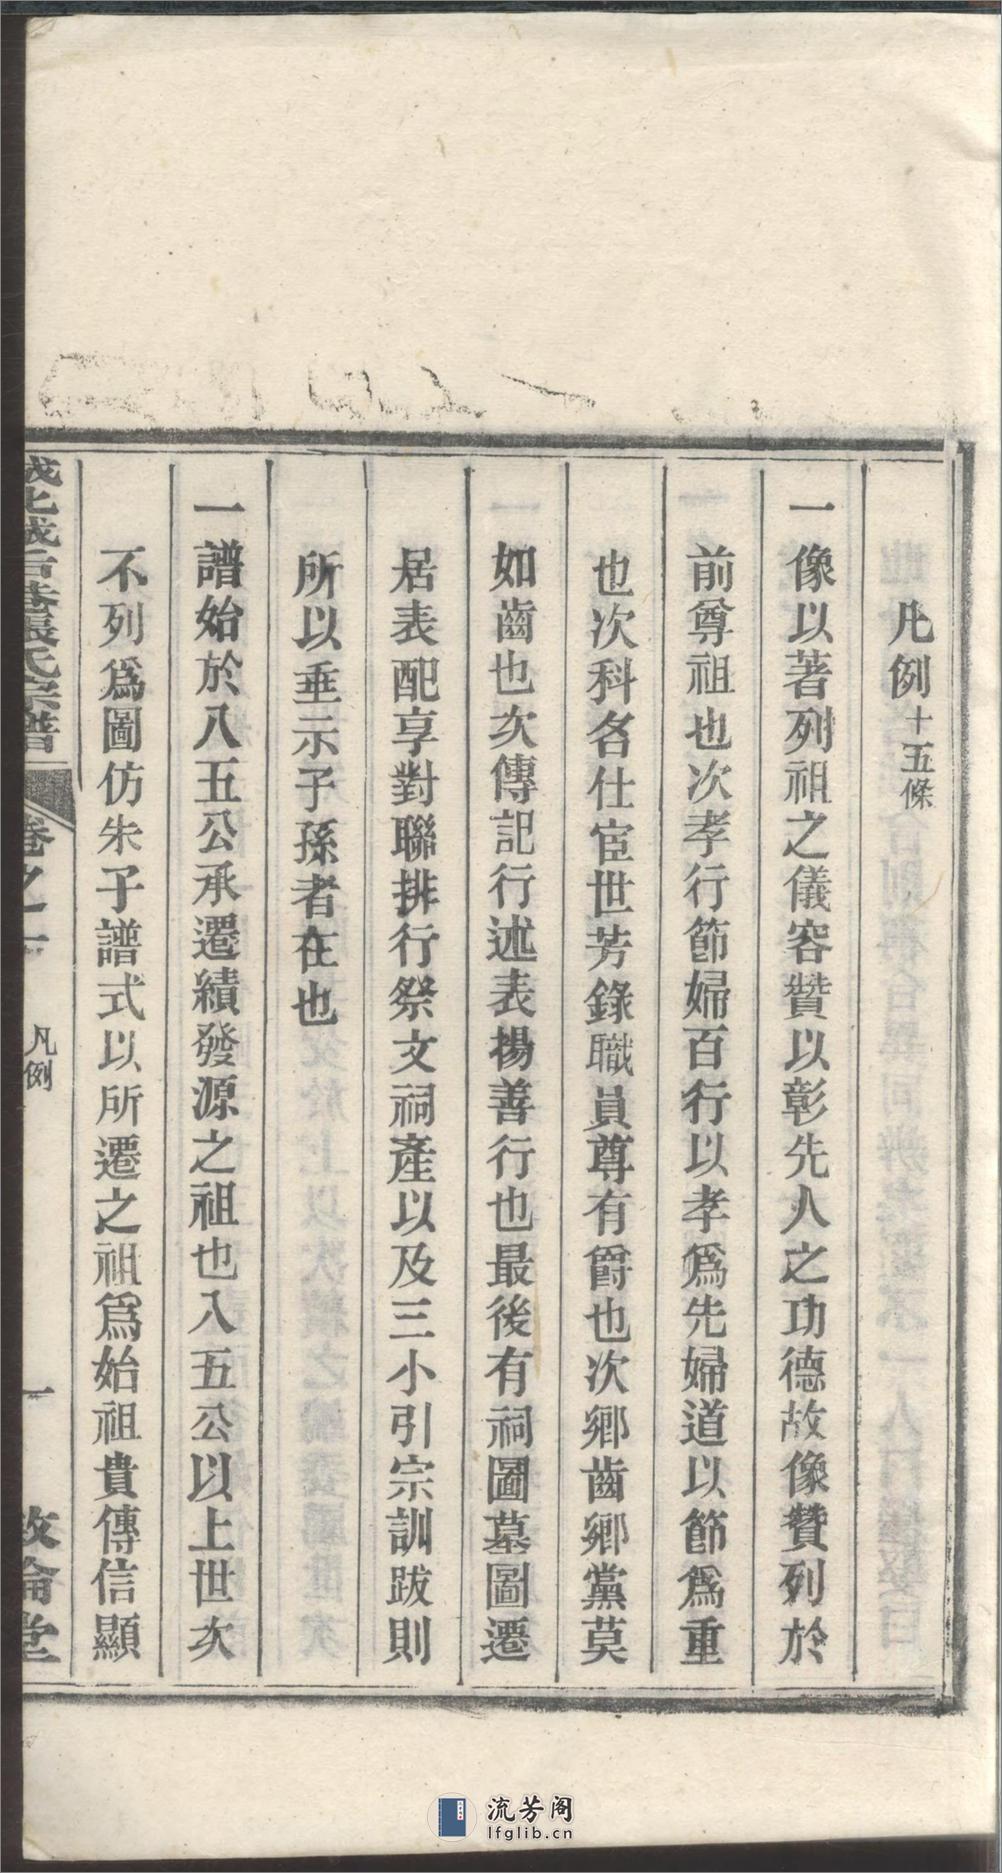 凡例十五條
一像以著列祖之儀容贊以彰先人之功德故像贊列於
前尊祖也次孝行節婦百行以孝爲先婦道以節爲重
也次科名仕宦世芳錄職員尊有爵也次鄉齒鄉黨莫
如齒也次傳記行述表揚善行也最後有祠圖墓圖遷
居表配享對聯排行祭文祠產以及三小引宗訓跋則
所以垂示子孫者在也
一譜始於八五公承遷績發源之祖也八五公以上世次
不列爲圖仿朱子譜式以所遷之祖爲始祖貴傳信顯
氏宗譜 卷之一 凡例 一
流芳阁
lfglib.cn